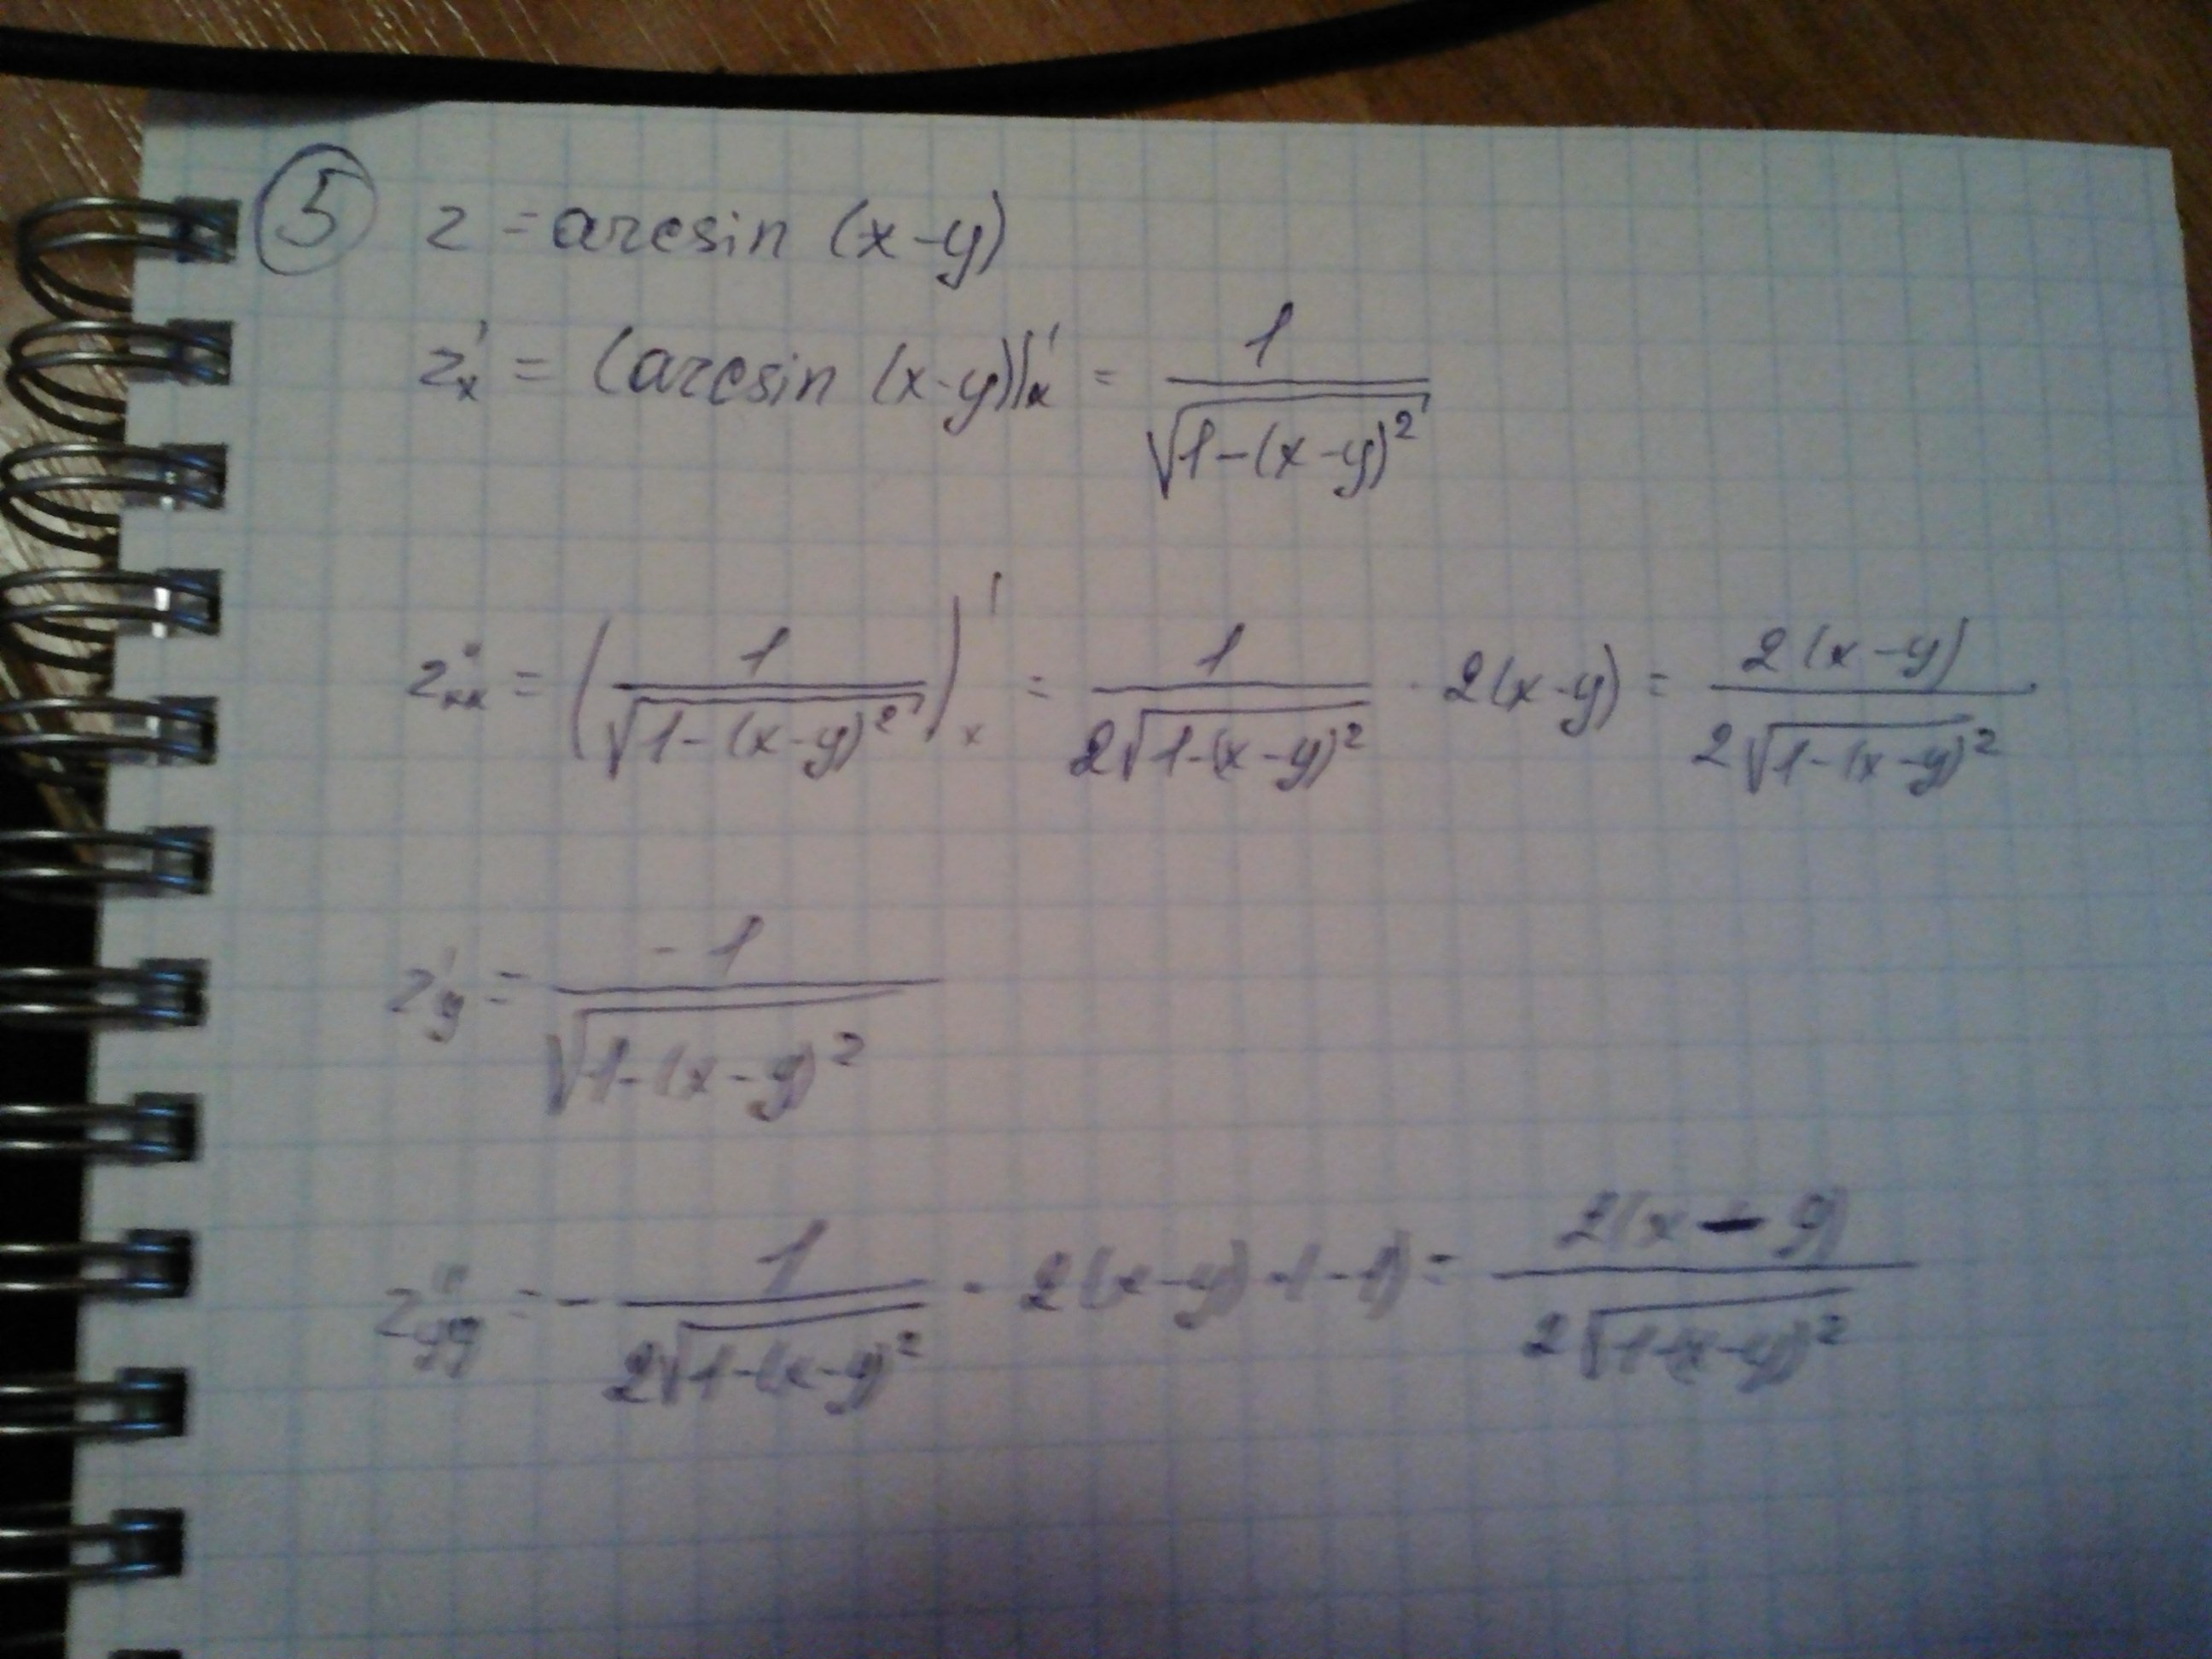 5 z = arcsin (x-y)
z'x = (arcsin (x-y))'x = 1/√(1-(x-y)²)
z''xx = (1/√(1-(x-y)²))'x = 1/(2√(1-(x-y)²)) · 2(x-y) = 2(x-y)/(2√(1-(x-y)²))
z'y = -1/√(1-(x-y)²)
z''yy = - 1/(2√(1-(x-y)²)) · 2(x-y) · (-1) = 2(x-y)/(2√(1-(x-y)²))